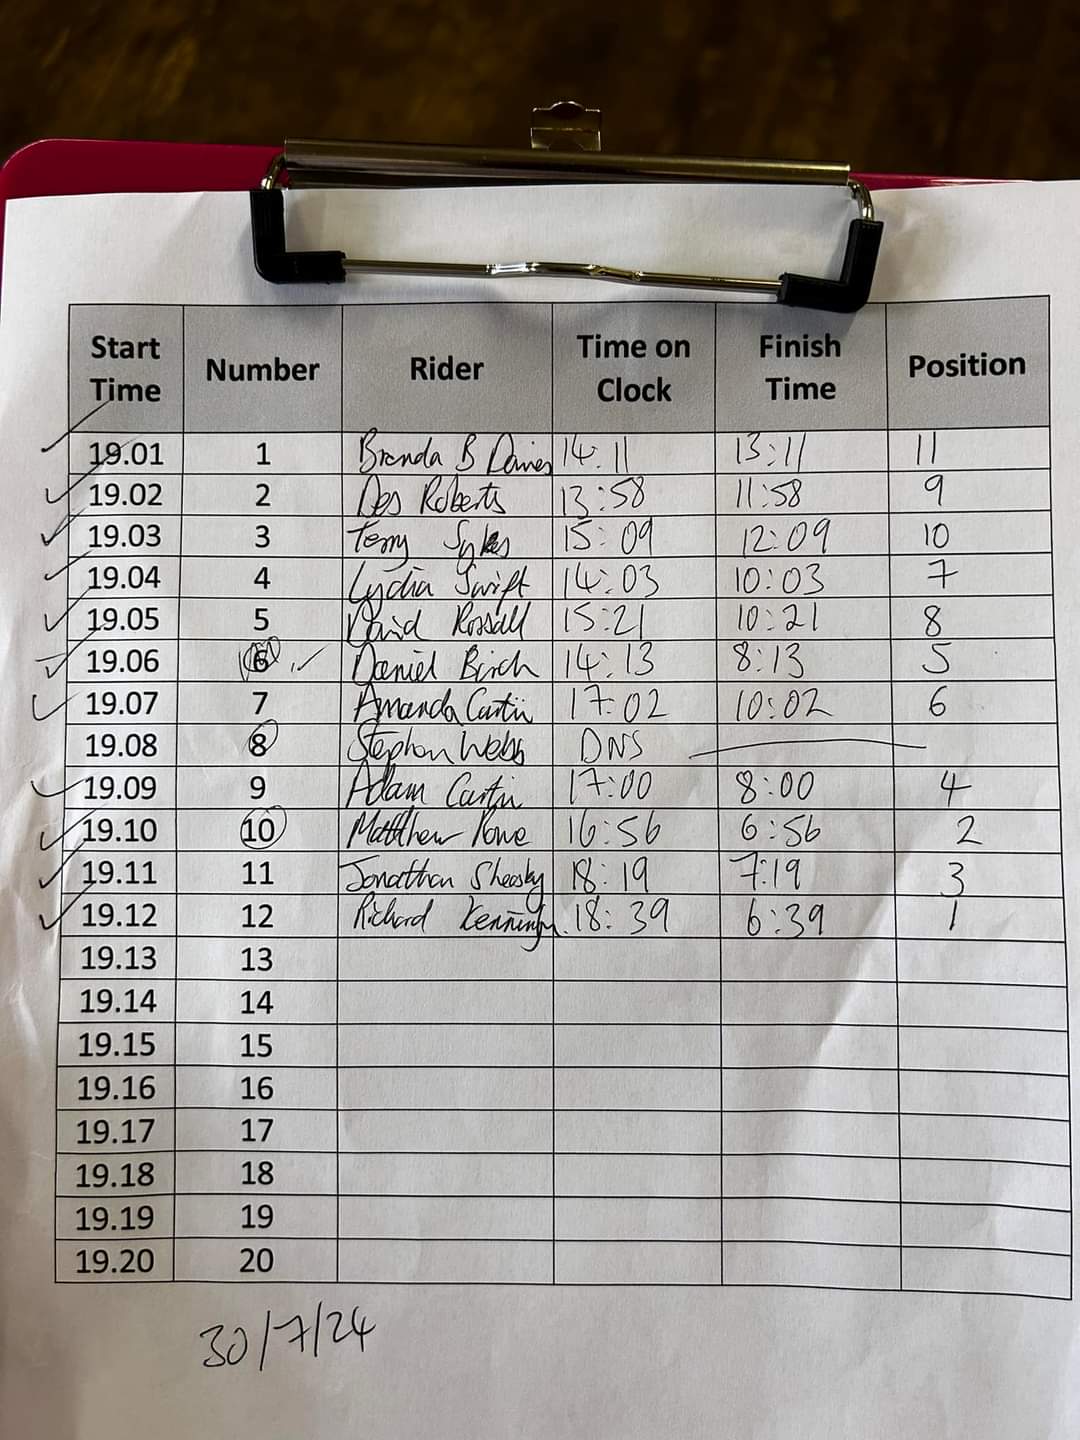 Start Time Number Rider Time on Clock Finish Time Position
19.01 1 Brenda B Davies 14:11 13:11 11
19.02 2 Des Roberts 13:58 11:58 9
19.03 3 Terry Sykes 15:09 12:09 10
19.04 4 Lydia Swift 14:03 10:03 7
19.05 5 David Rossall 15:21 10:21 8
19.06 6 Daniel Birch 14:13 8:13 5
19.07 7 Amanda 17:02 10:02 6
19.08 8 Stephen Webb DNS
19.09 9 Adam 17:00 8:00 4
19.10 10 Matthew 16:56 6:56 2
19.11 11 Jonathan 18:19 7:19 3
19.12 12 Richard 18:39 6:39 1
19.13 13
19.14 14
19.15 15
19.16 16
19.17 17
19.18 18
19.19 19
19.20 20
30/7/24